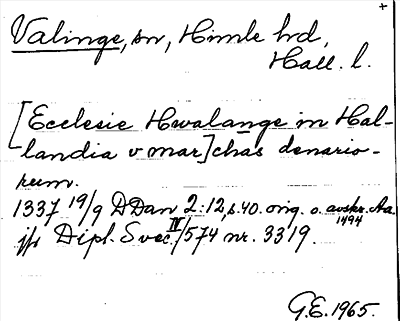 +
Valinge, sn, Himle hd,
Hall. l.
[Ecclesie Hwalange m Hal-
landia v mar]chas denario-
rum.
1337 19/9 DDan 2:12, s. 40. orig. o. avskr. Aa.
1494
jfr Dipl. Svec. IV/574 nr. 3319.
G.E. 1965.